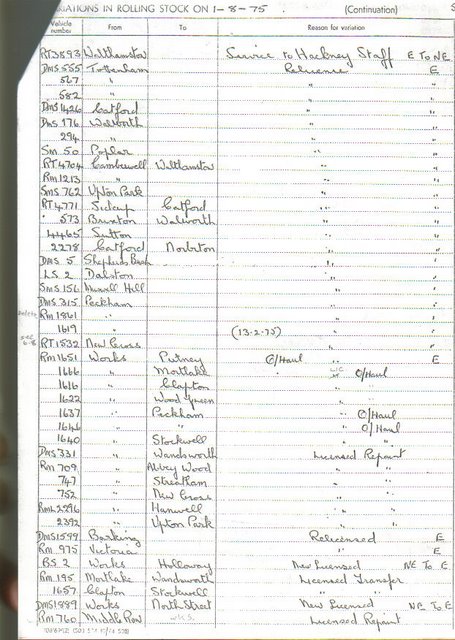 VARIATIONS IN ROLLING STOCK ON 1-8-75 (Continuation)
Vehicle number From To Reason for variation
RT3893 Walthamstow Service to Hackney Staff E TO NE
DMS 555 Tottenham Relicence E
567 " " "
582 " " "
DMS 1426 Catford " "
DMS 176 Walworth " "
294 " " "
SM 50 Poplar " "
RT 4704 Camberwell Walthamstow " "
RM 1213 " " "
SMS 762 Upton Park " "
RT 4771 Sidcup Catford " "
" 573 Brixton Walworth " "
4465 Sutton " "
2278 Catford Norbiton " "
DMS 5 Shepherds Bush " "
LS 2 Dalston " "
SMS 156 Muswell Hill " "
DMS 315 Peckham " "
RM 1861 " " "
1619 " (13-2-75) " "
RT 1532 New Cross " "
RM 1651 Works Putney O/Haul " E
1666 " Mortlake " O/Haul
1616 " Clapton " "
1622 " Wood Green " "
1637 " Peckham " O/Haul
1646 " " " O/Haul
1640 " Stockwell " "
DMS 331 " Wandsworth Licensed Repaint
RM 709 " Abbey Wood " "
747 " Streatham " "
752 " New Cross " "
RML 2296 " Hanwell " "
2392 " Upton Park " "
DMS 1599 Barking Relicensed E
RM 975 Victoria " E
BS 2 Works Holloway New Licensed NE TO E
RM 195 Mortlake Wandsworth Licensed Transfer
1657 Clapton Stockwell " "
DMS 1889 Works North Street New Licensed NE TO E
RM 760 Middle Row Licensed Repaint